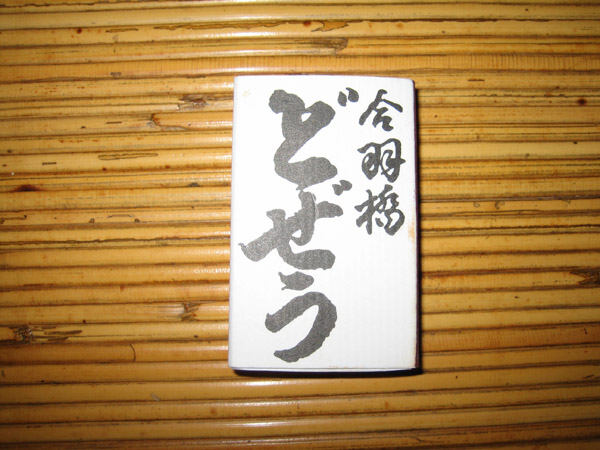 合羽橋
どぜう